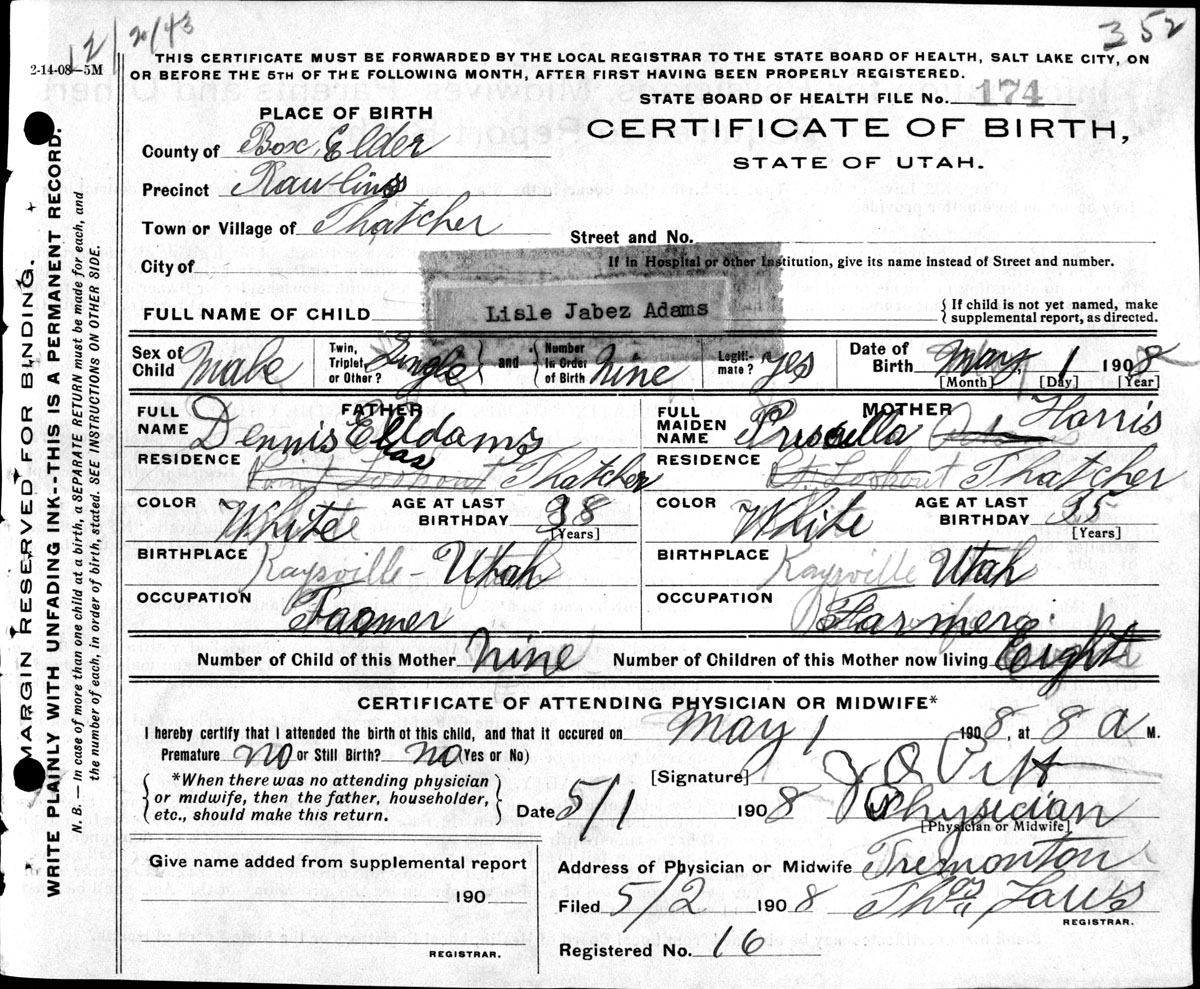 12/20/43
352
2-14-08—5M
THIS CERTIFICATE MUST BE FORWARDED BY THE LOCAL REGISTRAR TO THE STATE BOARD OF HEALTH, SALT LAKE CITY, ON
OR BEFORE THE 5TH OF THE FOLLOWING MONTH, AFTER FIRST HAVING BEEN PROPERLY REGISTERED.
STATE BOARD OF HEALTH FILE No. 174
PLACE OF BIRTH
CERTIFICATE OF BIRTH,
STATE OF UTAH.
County of Box Elder
Precinct Rawlins
Town or Village of Thatcher
Street and No.
City of
If in Hospital or other Institution, give its name instead of Street and number.
FULL NAME OF CHILD Lisle Jabez Adams
{ If child is not yet named, make
supplemental report, as directed.
Sex of Child Male
Twin, Triplet or Other? Single } and { Number in Order of Birth Nine
Legitimate? yes
Date of Birth May 1 1908
[Month] [Day] [Year]
FATHER
FULL NAME Dennis Elias Adams
RESIDENCE Point Lookout Thatcher
COLOR White
AGE AT LAST BIRTHDAY 38
[Years]
BIRTHPLACE Kaysville - Utah
OCCUPATION Farmer
MOTHER
FULL MAIDEN NAME Priscilla Adams Harris
RESIDENCE Pt. Lookout Thatcher
COLOR White
AGE AT LAST BIRTHDAY 35
[Years]
BIRTHPLACE Kaysville Utah
OCCUPATION
Number of Child of this Mother Nine
Number of Children of this Mother now living Eight
CERTIFICATE OF ATTENDING PHYSICIAN OR MIDWIFE*
I hereby certify that I attended the birth of this child, and that it occured on May 1 1908, at 8 a M.
Premature no or Still Birth? no (Yes or No)
{ *When there was no attending physician
or midwife, then the father, householder,
etc., should make this return. }
[Signature]
Physician
[Physician or Midwife]
Date 5/1 1908
Give name added from supplemental report
190
REGISTRAR.
Address of Physician or Midwife Tremonton
Filed 5/2 1908 Thos
REGISTRAR.
Registered No. 16
MARGIN RESERVED FOR BINDING.
WRITE PLAINLY WITH UNFADING INK--THIS IS A PERMANENT RECORD.
N. B. — In case of more than one child at a birth, a SEPARATE RETURN must be made for each, and
the number of each, in order of birth, stated. SEE INSTRUCTIONS ON OTHER SIDE.